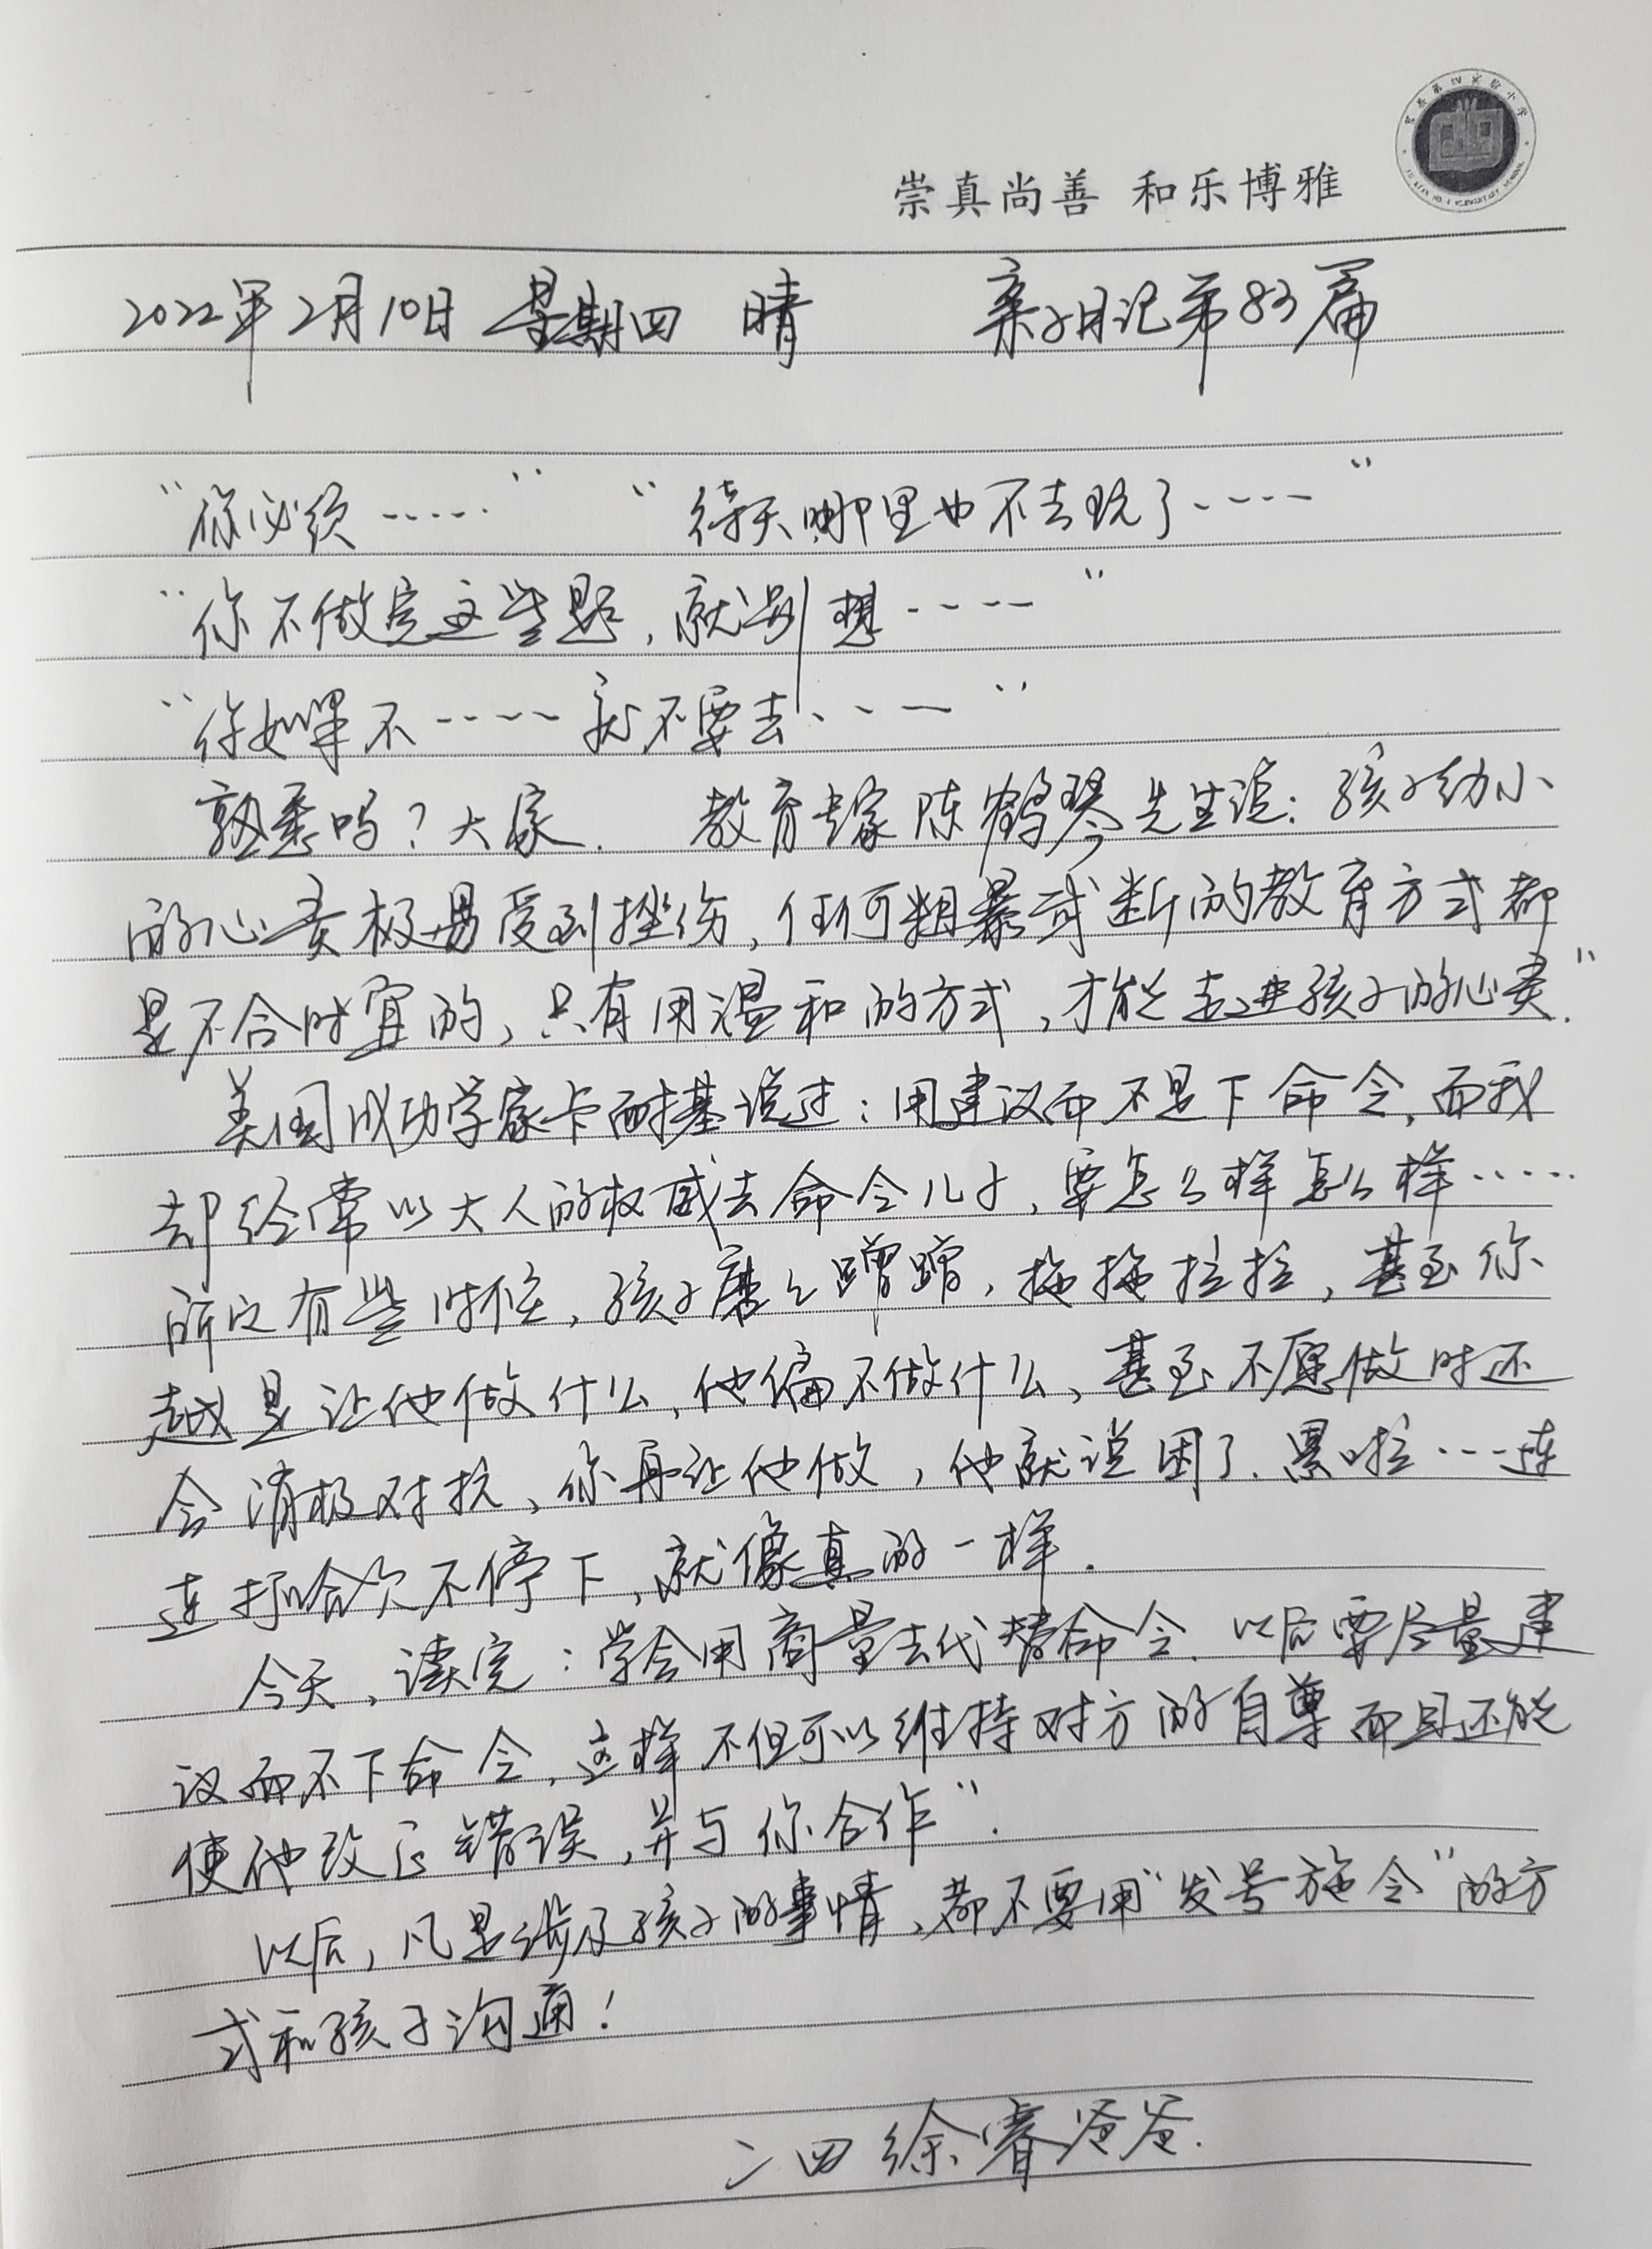 崇真尚善 和乐博雅
2022年2月10日 星期四 晴 亲子日记第83篇
“你必须……” “待天哪里也不去玩了……”
“你不做完这些题,就别想……”
“你如果不……就不要去……”
熟悉吗?大家. 教育专家陈鹤琴先生说:孩子幼小
的心灵极易受到挫伤,任何粗暴武断的教育方式都
是不合时宜的,只有用温和的方式,才能走进孩子的心灵.”
美国成功学家卡耐基说过:用建议而不是下命令,而我
却经常以大人的权威去命令儿子,要怎么样怎么样……
所以有些时候,孩子磨磨蹭蹭,拖拖拉拉,甚至你
越是让他做什么,他偏不做什么,甚至不愿做时还
会消极对抗,你再让他做,他就说困了、累啦…连
连打哈欠不停下,就像真的一样.
今天,读完:学会用商量去代替命令.以后要尽量建
议而不下命令,这样不但可以维持对方的自尊而且还能
使他改正错误,并与你合作”.
以后,凡是涉及孩子的事情,都不要用“发号施令”的方
式和孩子沟通!
二四徐睿爸爸.